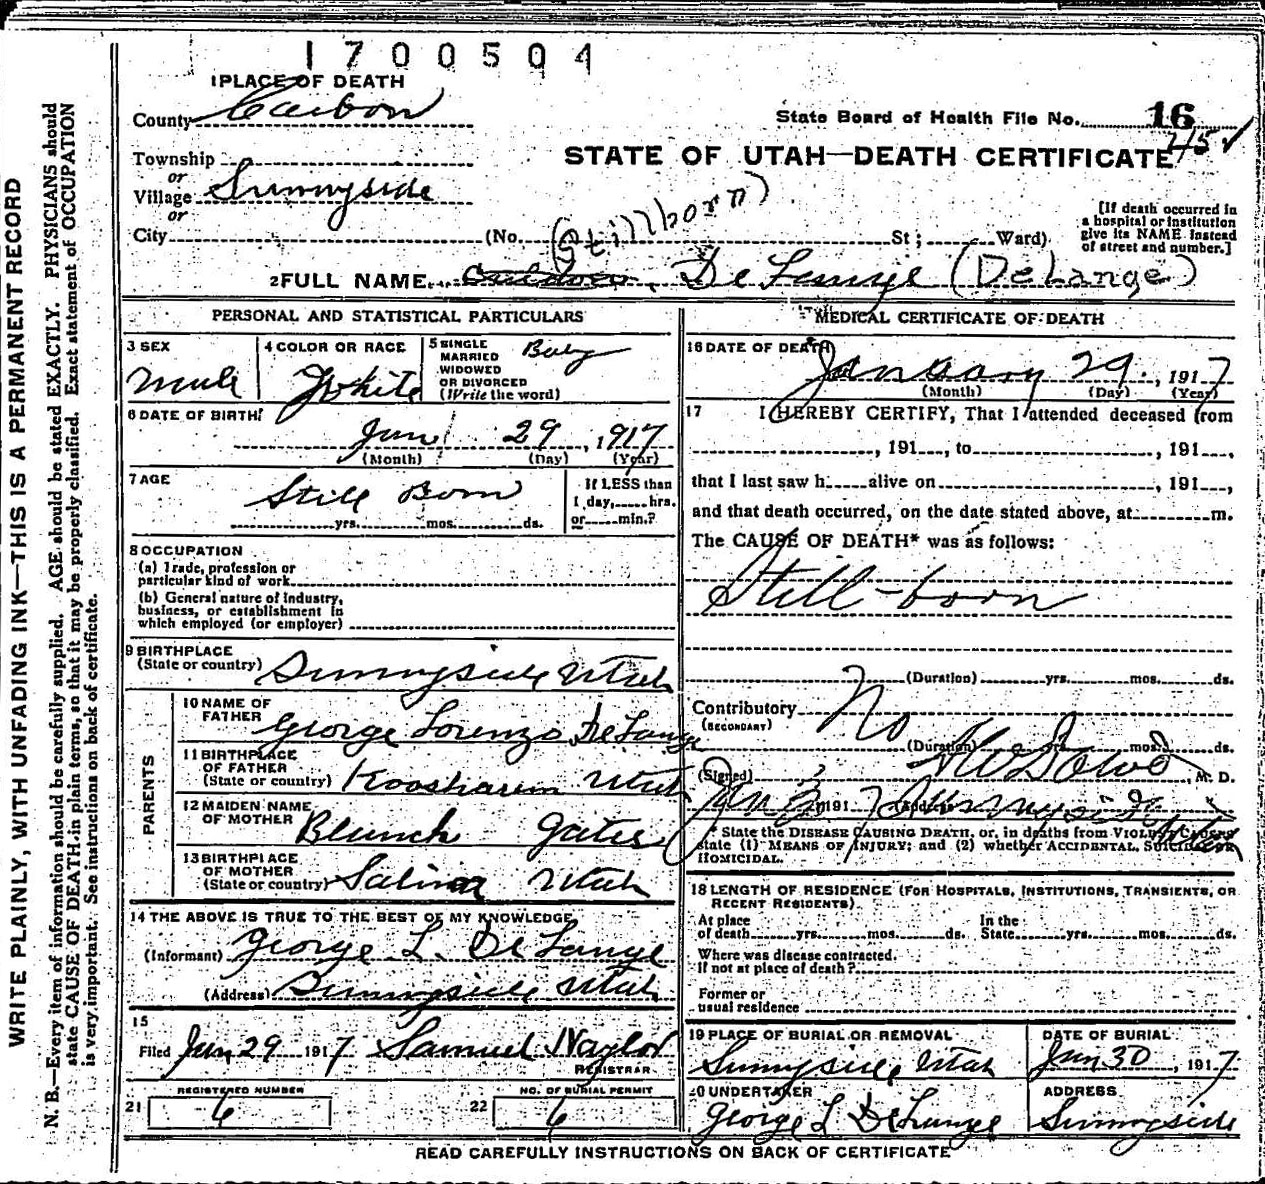 1700504
1 PLACE OF DEATH
County Carbon
State Board of Health File No. 16
Township
or
Village Sunnyside
or
City (No. St; Ward)
STATE OF UTAH—DEATH CERTIFICATE
(Stillborn)
[If death occurred in a hospital or institution give its NAME instead of street and number.]
2 FULL NAME De Lange (DeLange)
PERSONAL AND STATISTICAL PARTICULARS
3 SEX
Male
4 COLOR OR RACE
White
5 SINGLE MARRIED WIDOWED OR DIVORCED (Write the word)
Baby
6 DATE OF BIRTH
Jan 29, 1917
(Month) (Day) (Year)
7 AGE
Still Born
yrs. mos. ds.
If LESS than 1 day, hrs. or min.?
8 OCCUPATION
(a) Trade, profession or particular kind of work
(b) General nature of industry, business, or establishment in which employed (or employer)
9 BIRTHPLACE
(State or country) Sunnyside Utah
PARENTS
10 NAME OF FATHER George Lorenzo De Lange
11 BIRTHPLACE OF FATHER (State or country) Koosharem Utah
12 MAIDEN NAME OF MOTHER Blanch Gates
13 BIRTHPLACE OF MOTHER (State or country) Salina Utah
14 THE ABOVE IS TRUE TO THE BEST OF MY KNOWLEDGE
(Informant) George L. De Lange
(Address) Sunnyside Utah
15
Filed Jan 29 1917 Samuel Naylor
REGISTRAR
REGISTERED NUMBER
21 6
NO. OF BURIAL PERMIT
22 6
MEDICAL CERTIFICATE OF DEATH
16 DATE OF DEATH
January 29, 1917
(Month) (Day) (Year)
17 I HEREBY CERTIFY, That I attended deceased from
, 191 , to , 191 ,
that I last saw h alive on , 191 ,
and that death occurred, on the date stated above, at m.
The CAUSE OF DEATH* was as follows:
Still-born
(Duration) yrs. mos. ds.
Contributory No
(SECONDARY)
(Duration) yrs. mos. ds.
(Signed) , M. D.
Jan 1917 (Address) Sunnyside
* State the DISEASE CAUSING DEATH, or, in deaths from VIOLENT CAUSES
state (1) MEANS OF INJURY; and (2) whether ACCIDENTAL, SUICIDAL OR
HOMICIDAL.
18 LENGTH OF RESIDENCE (FOR HOSPITALS, INSTITUTIONS, TRANSIENTS, OR
RECENT RESIDENTS).
At place of death yrs. mos. ds. In the State yrs. mos. ds.
Where was disease contracted.
If not at place of death?
Former or
usual residence
19 PLACE OF BURIAL OR REMOVAL
Sunnyside Utah
DATE OF BURIAL
Jan 30, 1917
20 UNDERTAKER
George L De Lange
ADDRESS
Sunnyside
READ CAREFULLY INSTRUCTIONS ON BACK OF CERTIFICATE
WRITE PLAINLY, WITH UNFADING INK—THIS IS A PERMANENT RECORD
N. B.—Every item of information should be carefully supplied. AGE should be stated EXACTLY. PHYSICIANS should
state CAUSE OF DEATH in plain terms, so that it may be properly classified. Exact statement of OCCUPATION
is very important. See instructions on back of certificate.